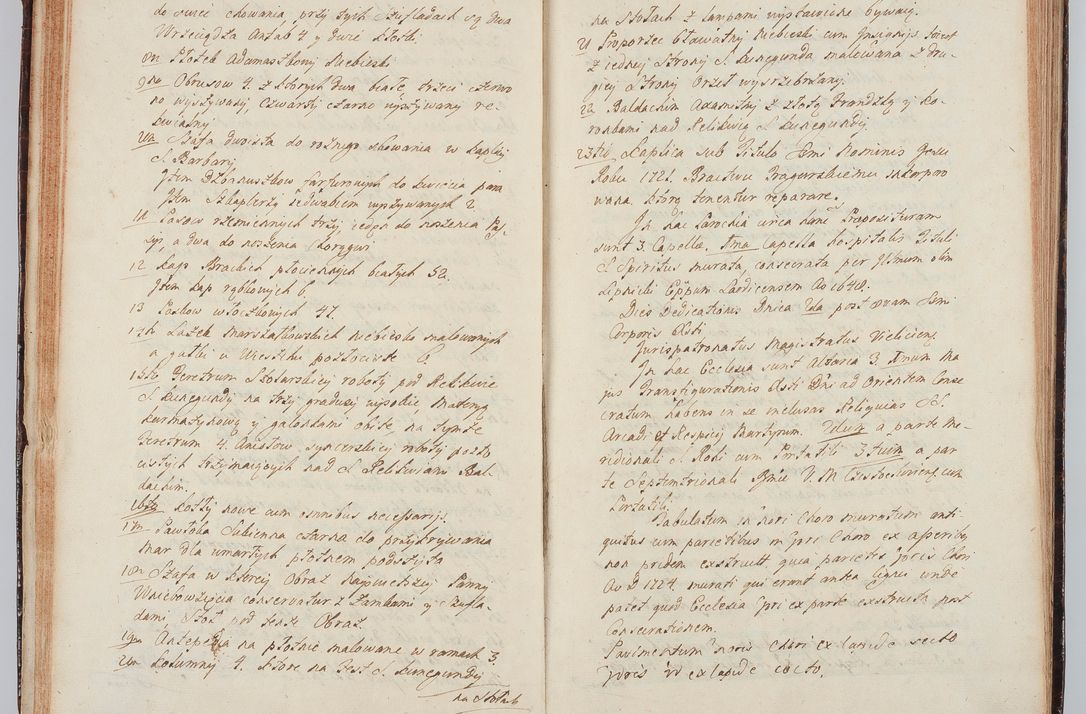 do swieć chowania, przy tych szufladach są dwa
Wrzeciądza Antab 4 y dwie kłotki.
8vo Płotek Adamaszkowy Niebieski
9no Obrusow 4. z ktorych dwa białe, trzeci czerwo
no wyszywany, czwarty czarno wyszywany
10mo Szafa dwoista do rożnego chowania w kaplicy
S. Barbary
Item Szkaplerzy jedwabiem wyszywanych 2
11 Pasow rzemiennych trzy, jeden do noszenia
a dwa do noszenia Chorągwi
12 Kap Brackich płociennych białych 52.
Item kap rąblowych 6.
13 Paskow włoczkowych 47.
14to Lasek Marszałkowskich niebiesko malowanych
a gałki u Wierzchu pozłociste 6
15to Feretrum Stolarskiey roboty pod Relikwie
S. Kunegundy na trzy gradusy wysokie, Materyą
y galonkami obite na tymże
Feretrum 4 Aniołow snycerskiey roboty pozło
cistych trzymaiących nad S. Relikwiami Bal
dachim.
16to kotły nowe cum omnibus necessarijs.
17mo Pawłoka Sukienna czarna do przykrywania
Mar dla umarłych płotnem podszyta
18vo Szafa w ktorey Obraz Nayświętszey Panny
Wniebowzięcia conservatur z Zamkami y Szufla-
dami, Stoł pod tenże Obraz.
19no Antepedia na płotnie malowane w ramach 3.
20mo Kolumny 4. ktore na Fest S. Kunegundy
na Stołach
na Stołach z lampami wystawione bywaią.
21 Proporzec bławatny niebieski cum Insignijs
z iedney Strony S. Kunegunda malowana z dru-
giey Strony Orzeł wysrzebrzany.
22 Baldachim Axamitny z złotą Frandzlą y ko-
ronkami nad Relikwią S. Kunegundy.
23tio Kaplica sub Titulo SSmi Nominis Jesu
Roku 1721. Bractwu inkorporo
wana. które tenentur reparare.
In hac Parochia circa hanc Proposituram
sunt 3. Capellæ. Ima Capella hospitalis Tituli
S. Spiritus murata, consecrata per Illmum olim
Lipnicki Eppum Laodicensem Ao 1648.
Dies Dedicationis Dnica 2da post 8vam SSmi
Corporis Xsti
Jurispatronatus Magistratus Vielicien:
In hac Ecclesia sunt Altaria 3. Imum Ma
jus Transfigurationis Xsti Dni ad Orientem Conse
cratum habens in se inclusas Reliquias SS.
Arcadi et Hospicij Martyrum. 2dum a parte Me-
ridionali S. Rochi cum Portatili. 3tium a par
te Septemtrionali Bmæ V. M. Częstochoviensis cum
Portatili.
Tabulatum in Nori Choro muratum anti
quitus cum parietibus in Ipri Choro ex asseribus
non pridem exstructu quia parietes Ipris Chori
Ao D. 1724. murati qui erant antea lignei unde
patet quod Ecclesia Ipri ex parte exstructa post
Consecrationem.
Pavimentum Noris Chori ex lapide secto
Ipris vero ex lapide cocto.